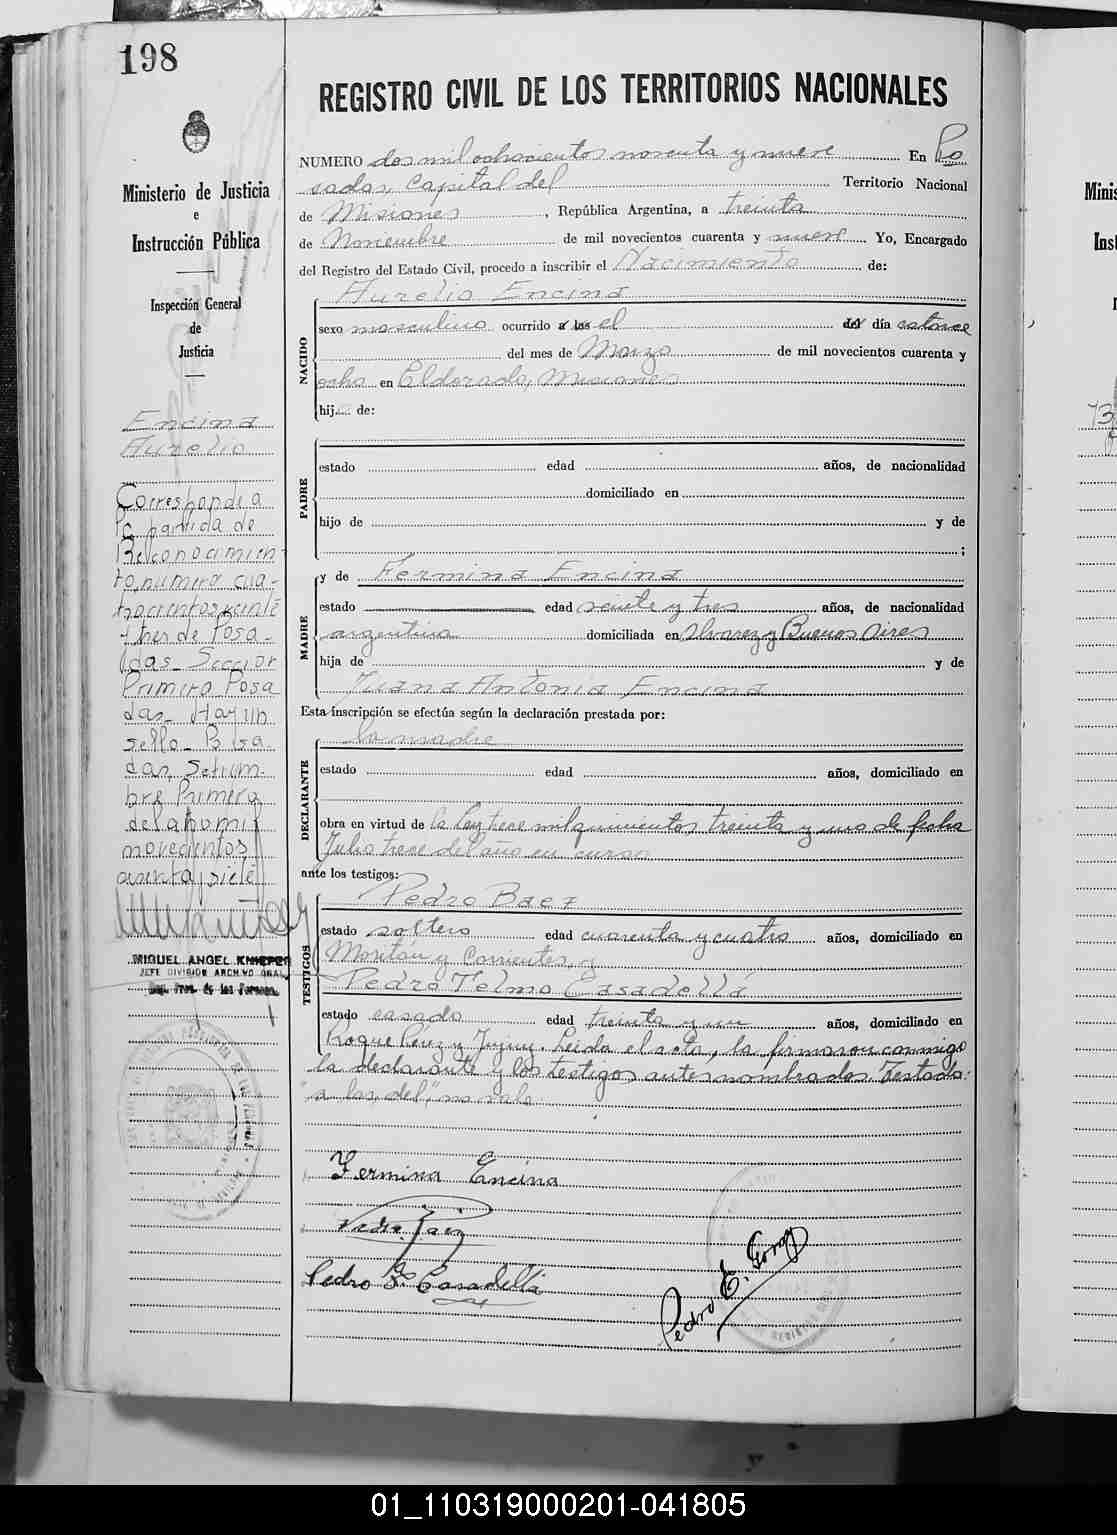 198
Ministerio de Justicia
e
Instrucción Pública
Inspección General
de
Justicia
Encina
Aurelio
Corresponde a
la partida de
Reconocimien-
to, numero cua-
trocientos veinti
tres de Posa-
das_ Seccion
Primera Posa
das_ Hay un
sello_ Posa
das, Setiem-
bre Primero
del año mil
novecientos
MIGUEL ANGEL
JEFE DIVISION ARCHIVO GRAL.
Reg. Prov. de las Personas
REGISTRO CIVIL DE LOS TERRITORIOS NACIONALES
NUMERO dos mil ochocientos noventa y nueve En Po
sadas, Capital del Territorio Nacional
de Misiones, República Argentina, a treinta
de Noviembre de mil novecientos cuarenta y nueve Yo, Encargado
del Registro del Estado Civil, procedo a inscribir el Nacimiento de:
NACIDO
Aurelio Encina
sexo masculino ocurrido a las el del día catorce
del mes de Marzo de mil novecientos cuarenta y
ocho en Eldorado, Misiones
hij de:
PADRE
estado edad años, de nacionalidad
domiciliado en
hijo de y de
;
MADRE
y de Fermina Encina
estado edad veinte y tres años, de nacionalidad
argentina domiciliada en Alvarez y Buenos Aires
hija de y de
Juana Antonia Encina
Esta inscripción se efectúa según la declaración prestada por:
DECLARANTE
la madre
estado edad años, domiciliado en
obra en virtud de la Ley trece mil quinientos treinta y uno de fecha
Julio trece del año en curso
ante los testigos:
TESTIGOS
Pedro Baez
estado soltero edad cuarenta y cuatro años, domiciliado en
y Corrientes, y
Pedro Telmo Casadellá
estado casado edad treinta y un años, domiciliado en
Roque Pérez y Jujuy. Leida el acta, la firmaron conmigo
la declarante y los testigos antes nombrados. Testado:
"a las, del", no vale
Fermina Encina
Pedro Baez
Pedro T. Casadellá
Pedro E.
Minis
Inst
01_110319000201-041805